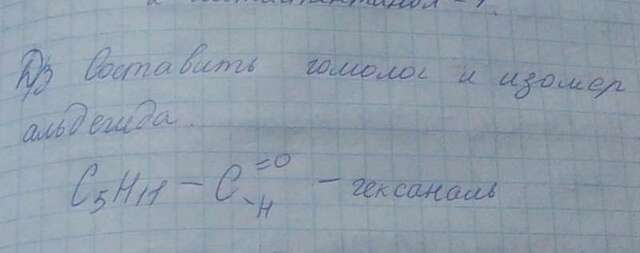 Д/З Составить гомолог и изомер
альдегида.
C5H11 – C =O –H – гексаналь